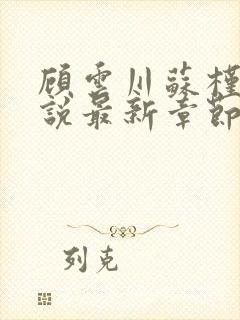 顾云川蘇槿
說最新章節
列克